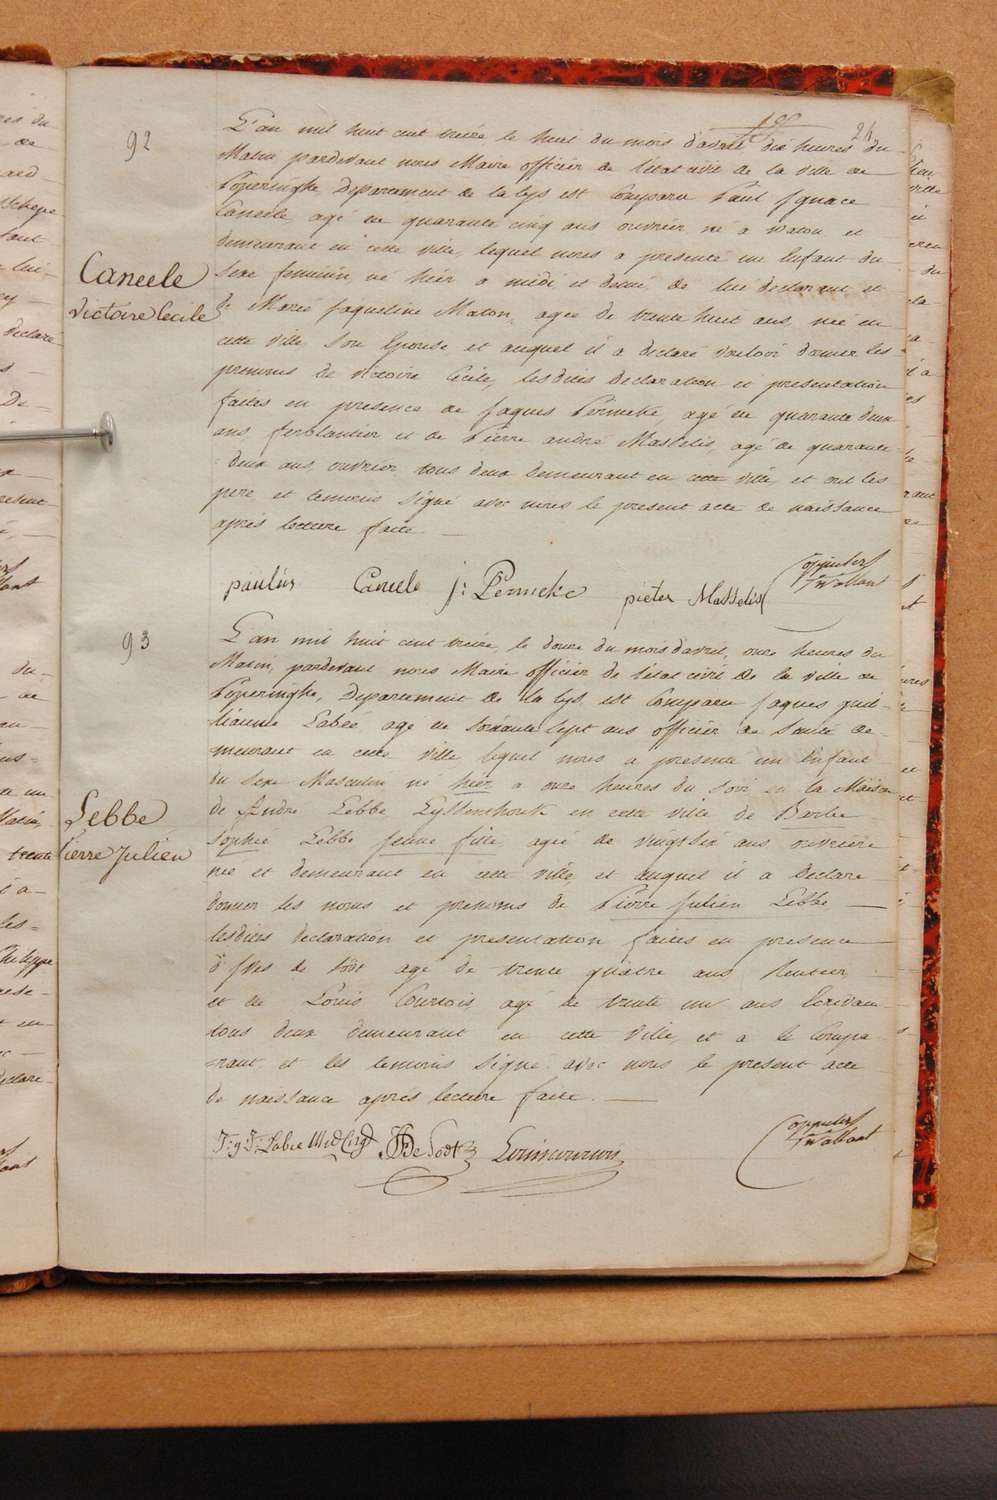 24
92
L'an mil huit cent treize le huit du mois d'avril dix heures du
Matin pardevant nous Maire officier de l'état civil de la ville de
Poperinghe Département de la Lys est Comparu Paul Ignace
Caneele, agé de quarante cinq ans ouvrier né a Watou et
demeurant en cette ville, lequel nous a presenté un Enfant du
Caneele
Victoire Cecile
Sexe feminin, né hier a midi et demi, de lui declarant et
de Marie Jaqueline Maton, agée de trente huit ans, née en
cette ville Son Epouse, et auquel il a declaré vouloir donner les
prenoms de Victoire Cecile, lesdites Declaration et presentation
faites en presence de Jaques Permeke, agé de quarante deux
ans ferblantier et de Pierre andré Masselis, agé de quarante
deux ans, ouvrier tous deux demeurant en cette ville, et ont les
pere et temoins Signé avec nous le present acte de naissance
aprés lecture faite. —
paulus Caneele j: Permeke pieter Masselis
93
L'an mil huit cent treize, le douze du mois d'avril, onze heures du
Matin, pardevant nous Maire officier de l'état civil de la ville de
Poperinghe, Departement de la Lys, est Comparu Jaques Guil-
liaume Labeé agé de soixante sept ans officier de Santé de-
meurant en cette ville lequel nous a presenté un Enfant
du Sexe Masculin né hier a onze heures du Soir en la Maison
Lebbe
Pierre Julien
de Andre Lebbe en cette ville de Barbe
Sophie Lebbe jeune fille agée de vingt six ans ouvriere
née et demeurant en cette ville, et auquel il a Declaré
donner les noms et prenoms de Pierre Julien Lebbe —
lesdites declaration et presentation faites en presence
de agé de trente quatre ans Rentier
et de Louis Courtois, agé de trente un ans Ecrivain
tous deux demeurant en cette ville, et a le Compa-
rant, et les temoins Signé avec nous le present acte
de naissance aprés lecture faite. —
J: g: Labee Louis Courtois